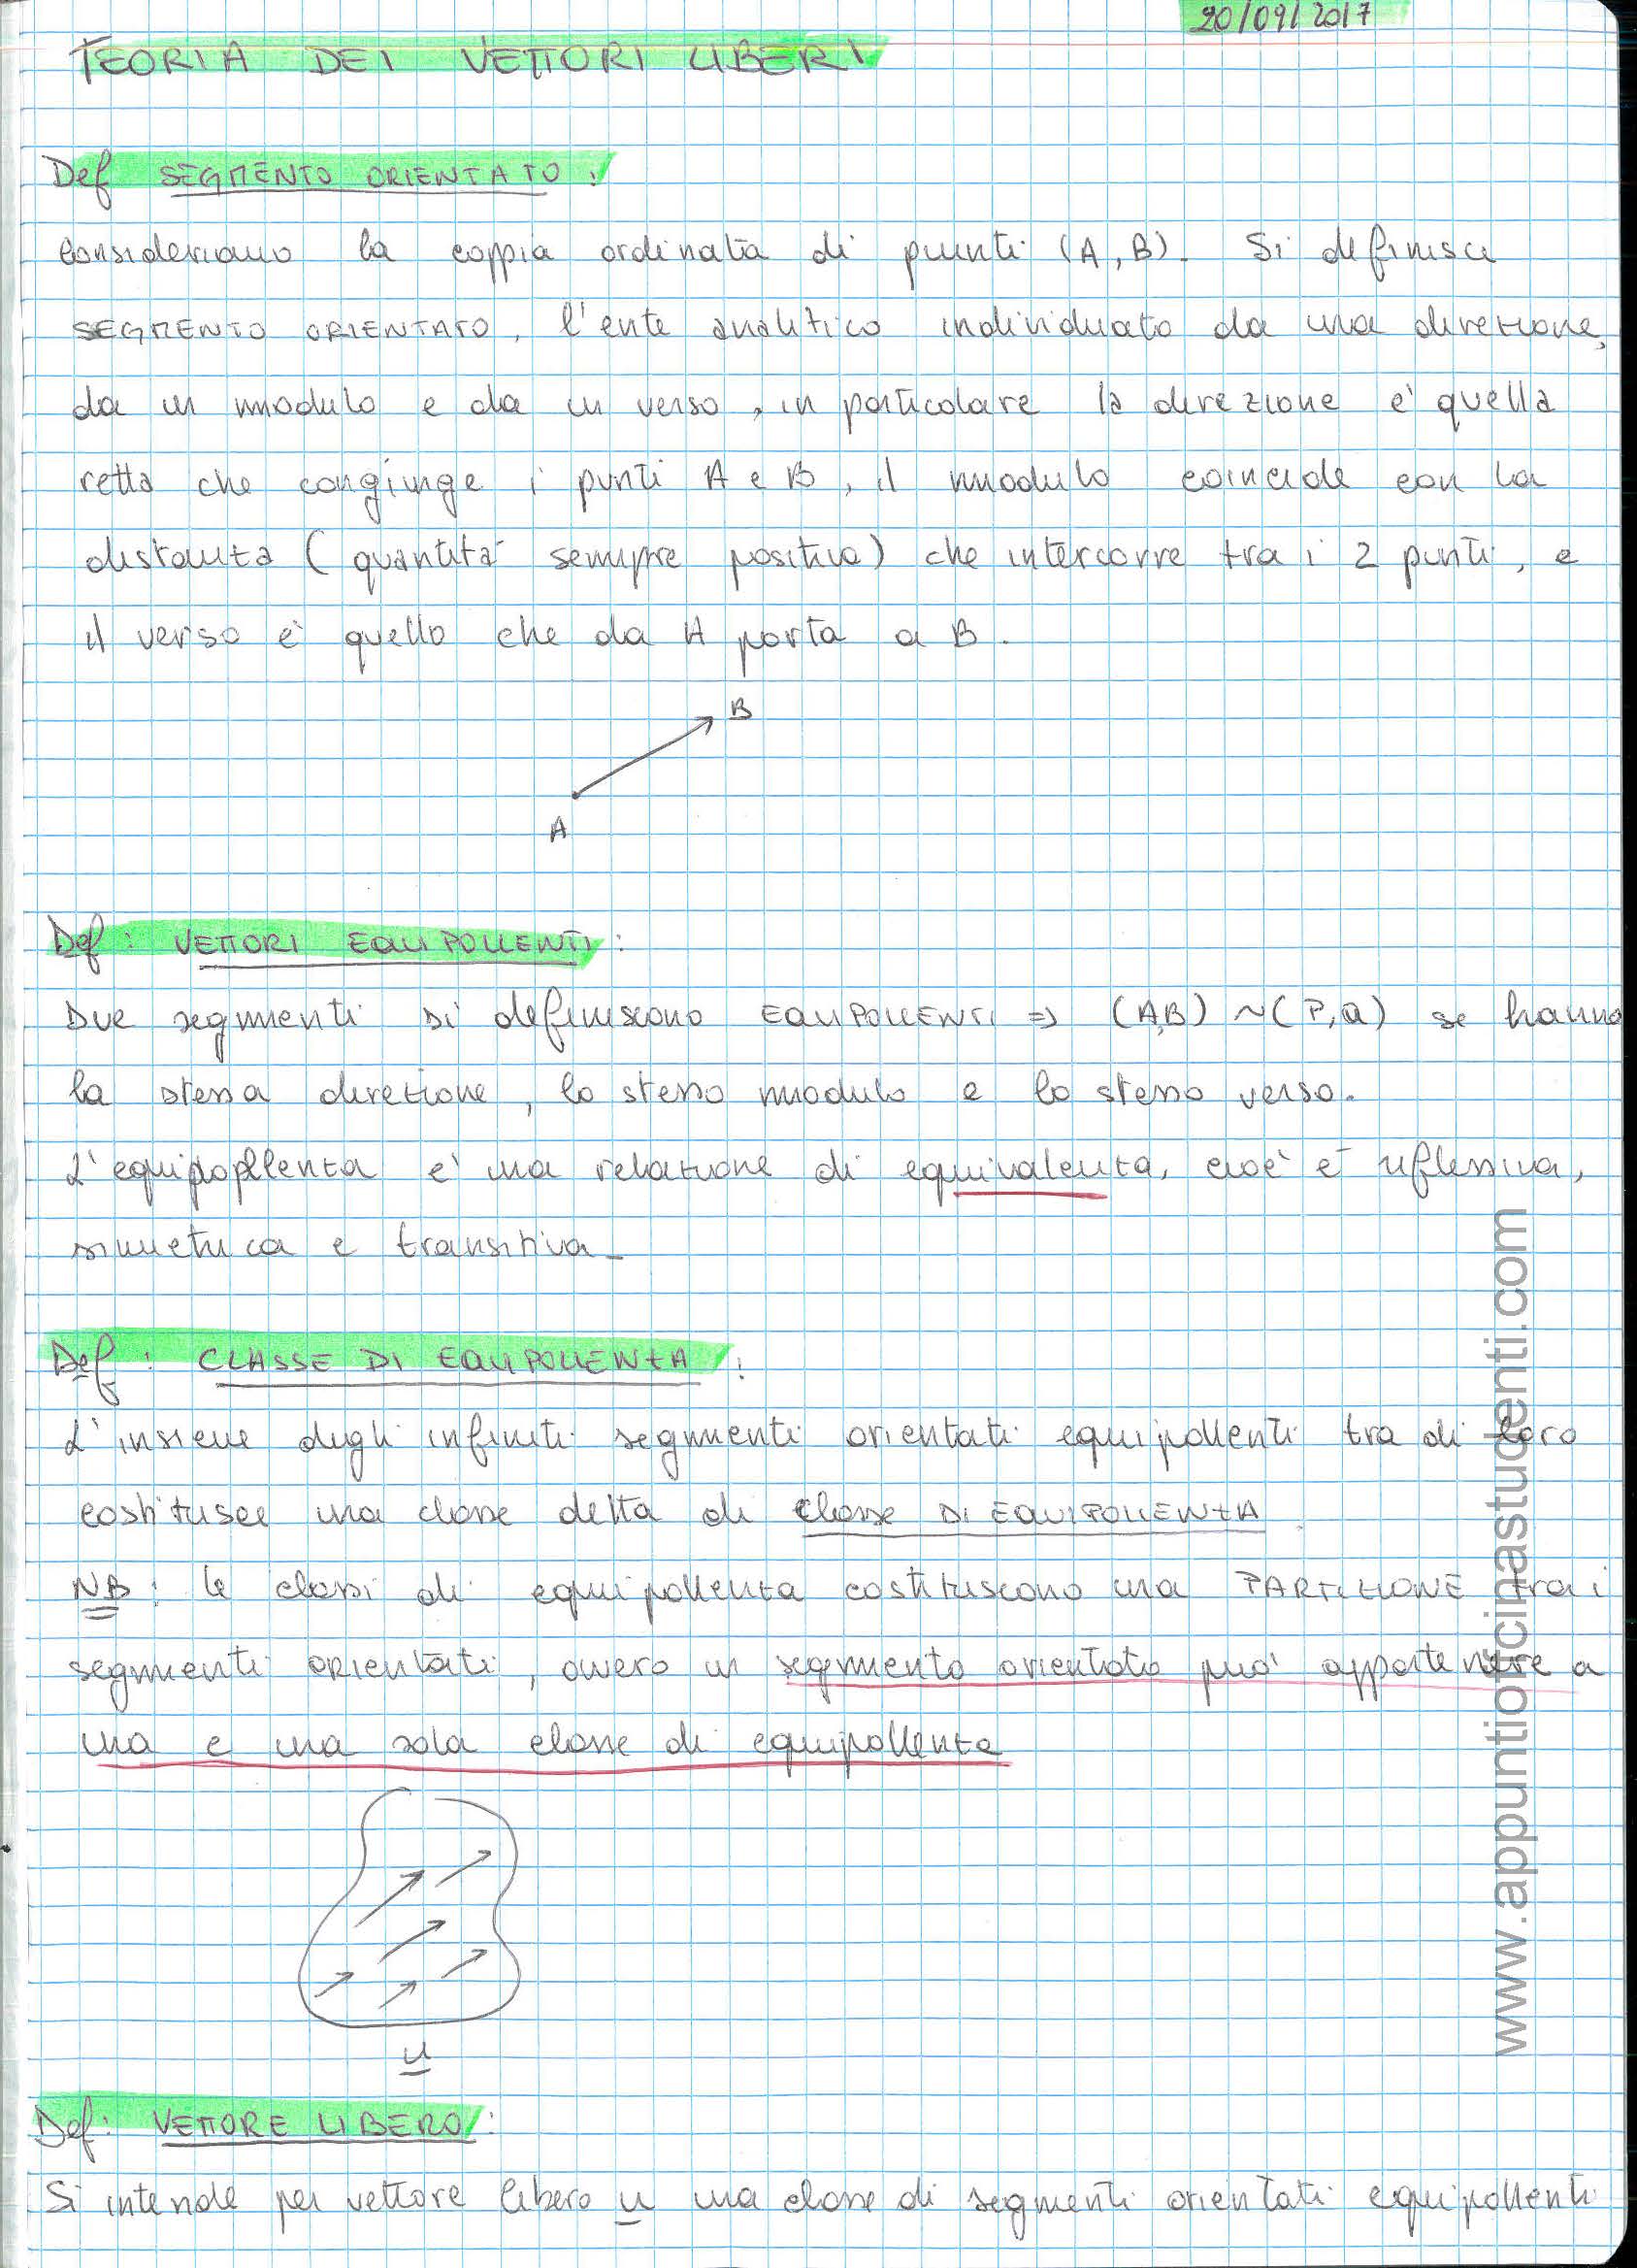 20/09/2017
TEORIA DEI VETTORI LIBERI
Def SEGMENTO ORIENTATO:
Consideriamo la coppia ordinata di punti (A,B). Si definisce
SEGMENTO ORIENTATO, l'ente analitico individuato da una direzione,
da un modulo e da un verso, in particolare la direzione e' quella
retta che congiunge i punti A e B, il modulo coincide con la
distanza (quantita' sempre positiva) che intercorre tra i 2 punti, e
il verso e' quello che da A porta a B.
B
A
Def: VETTORI EQUIPOLLENTI:
Due segmenti si definiscono EQUIPOLLENTI => (A,B) ~ (P,Q) se hanno
la stessa direzione, lo stesso modulo e lo stesso verso.
L'equipollenza e' una relazione di equivalenza, cioe' e' riflessiva,
simmetrica e transitiva.
Def: CLASSE DI EQUIPOLLENZA:
L'insieme degli infiniti segmenti orientati equipollenti tra di loro
costituisce una classe detta di classe DI EQUIPOLLENZA
NB: le classi di equipollenza costituiscono una PARTIZIONE tra i
segmenti orientati, ovvero un segmento orientato puo' appartenere a
una e una sola classe di equipollenza
u
Def: VETTORE LIBERO:
Si intende per vettore libero u una classe di segmenti orientati equipollenti
www.appuntiofficinastudenti.com